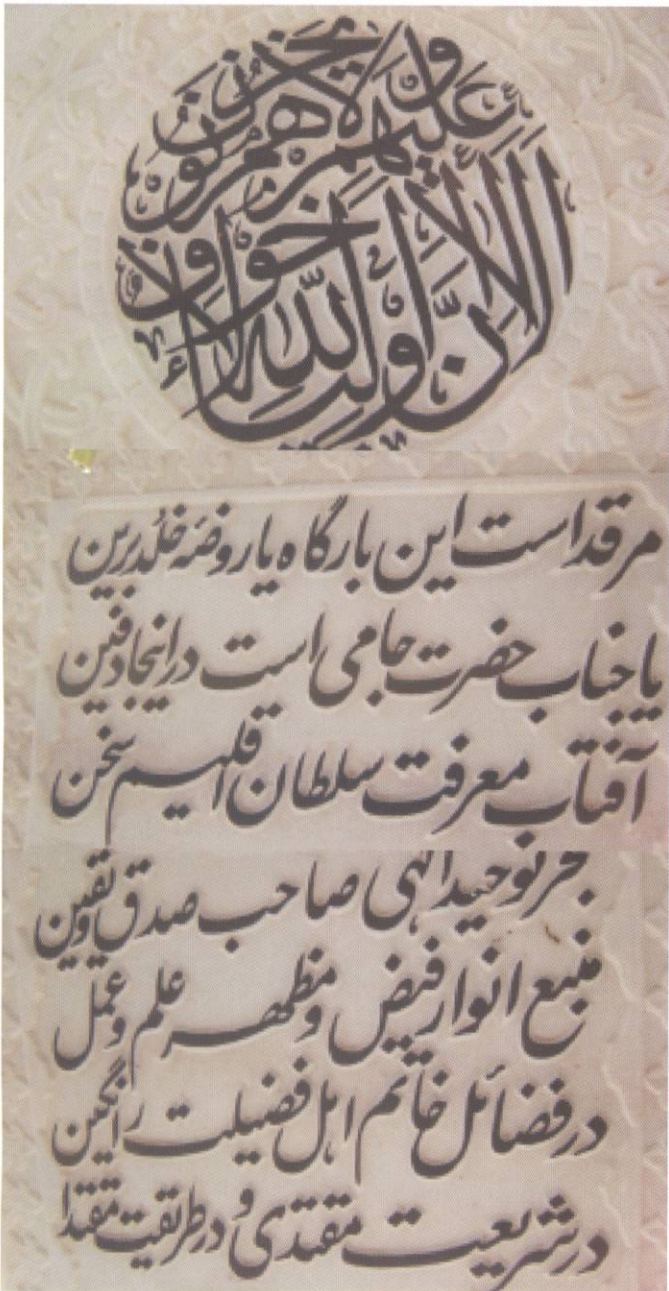 الا ان اولیاء الله لا خوف علیهم ولا هم یحزنون
مرقد است این بارگاه یا روضه خلد برین
یا جناب حضرت جامی است در اینجا دفین
آفتاب معرفت سلطان اقلیم سخن
بحر توحید الهی صاحب صدق و یقین
منبع انوار فیض و مظهر علم و عمل
در فضائل خاتم اهل فضیلت را نگین
در شریعت مقتدی و در طریقت مقتدا